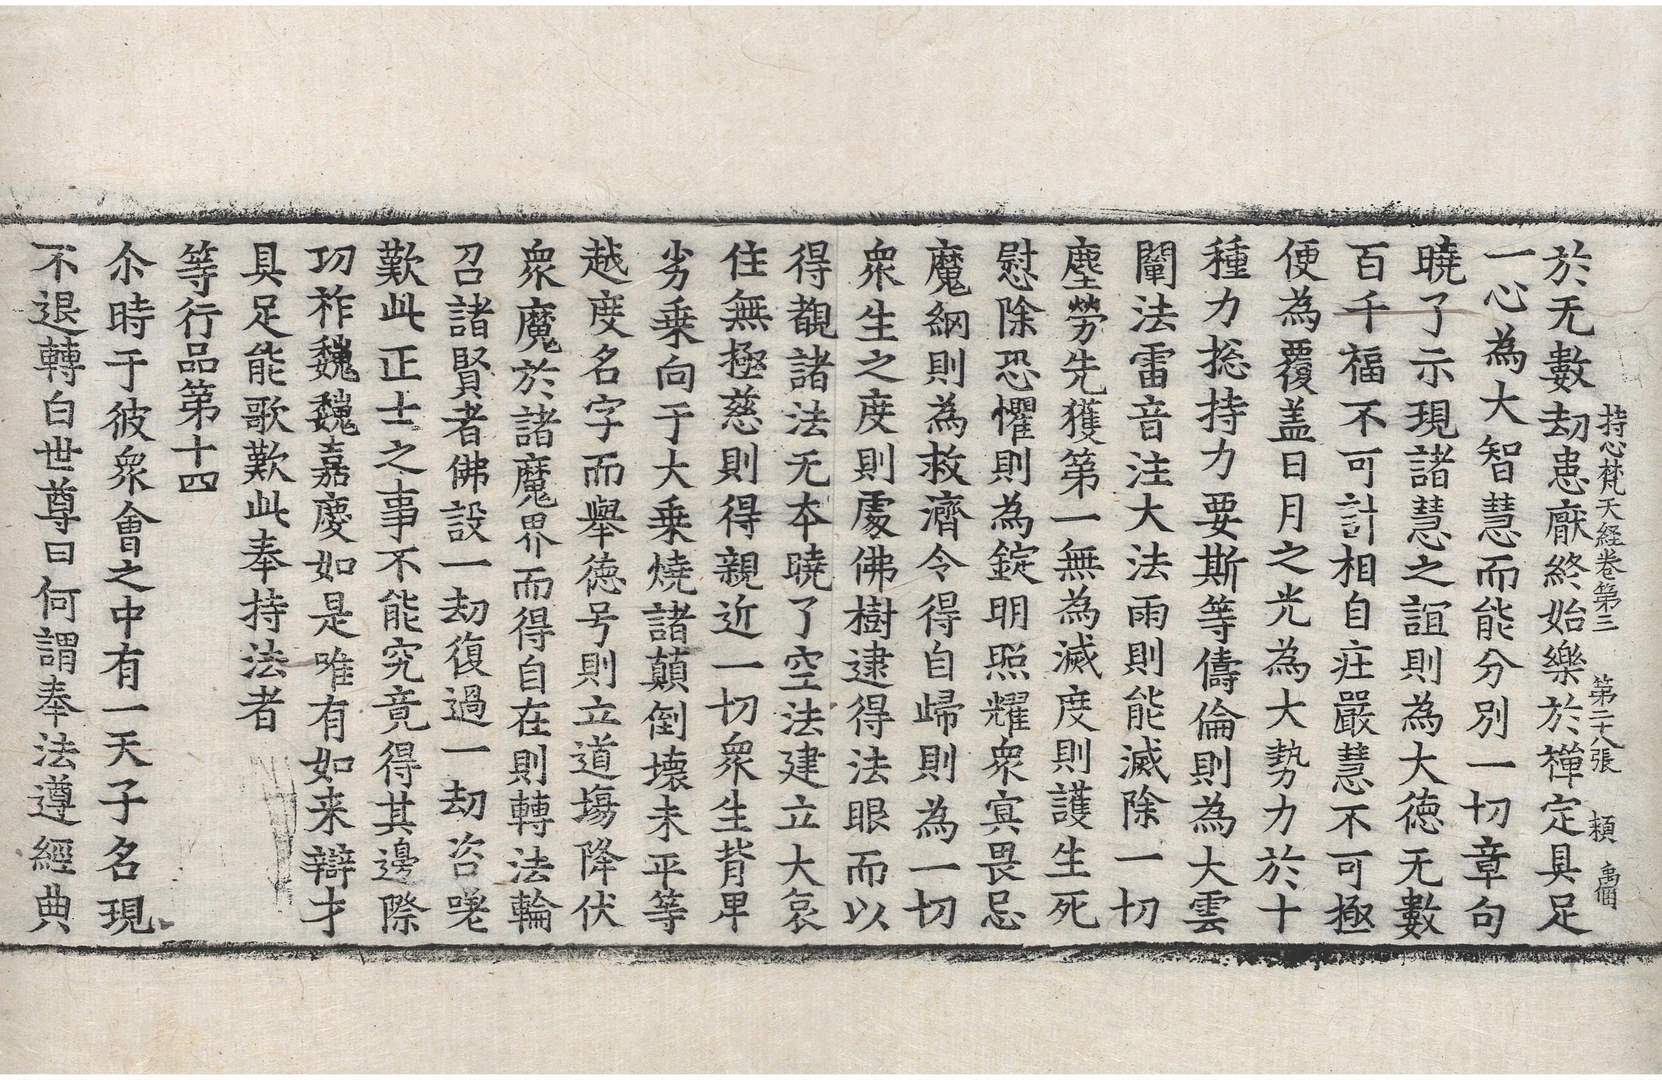 持心梵天経卷第三　第二十八張　頪　禹
於无數劫患厭終始樂於禪定具足
一心為大智慧而能分別一切章句
曉了示現諸慧之誼則為大德无數
百千福不可計相自莊嚴慧不可極
便為覆盖日月之光為大勢力於十
種力揔持力要斯等儔倫則為大雲
闡法雷音注大法雨則能滅除一切
塵勞先獲第一無為滅度則護生死
慰除恐懼則為錠明照耀衆冥畏忌
魔網則為救濟令得自歸則為一切
衆生之度則處佛樹逮得法眼而以
得覩諸法无本曉了空法建立大哀
住無極慈則得親近一切衆生背卑
劣乗向于大乗燒諸顛倒壞未平等
越度名字而舉德号則立道塲降伏
衆魔於諸魔界而得自在則轉法輪
召諸賢者佛設一劫復過一劫咨嗟
歎此正士之事不能究竟得其邊際
功祚巍巍嘉慶如是唯有如来辯才
具足能歌歎此奉持法者
等行品第十四
尒時于彼衆會之中有一天子名現
不退轉白世尊曰何謂奉法遵經典